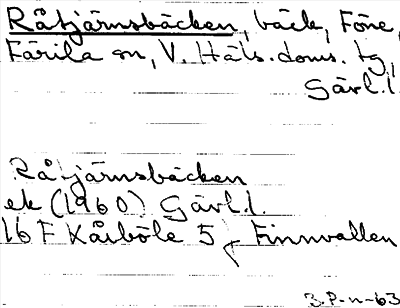 Råtjärnsbäcken, bäck, Föne,
Färila sn, V. Häls. doms. tg,
Gävl.l.
Råtjärnsbäcken
ek (1960) Gävl.l.
16 F Kårböle 5 f Finnvallen
3.P.n-63